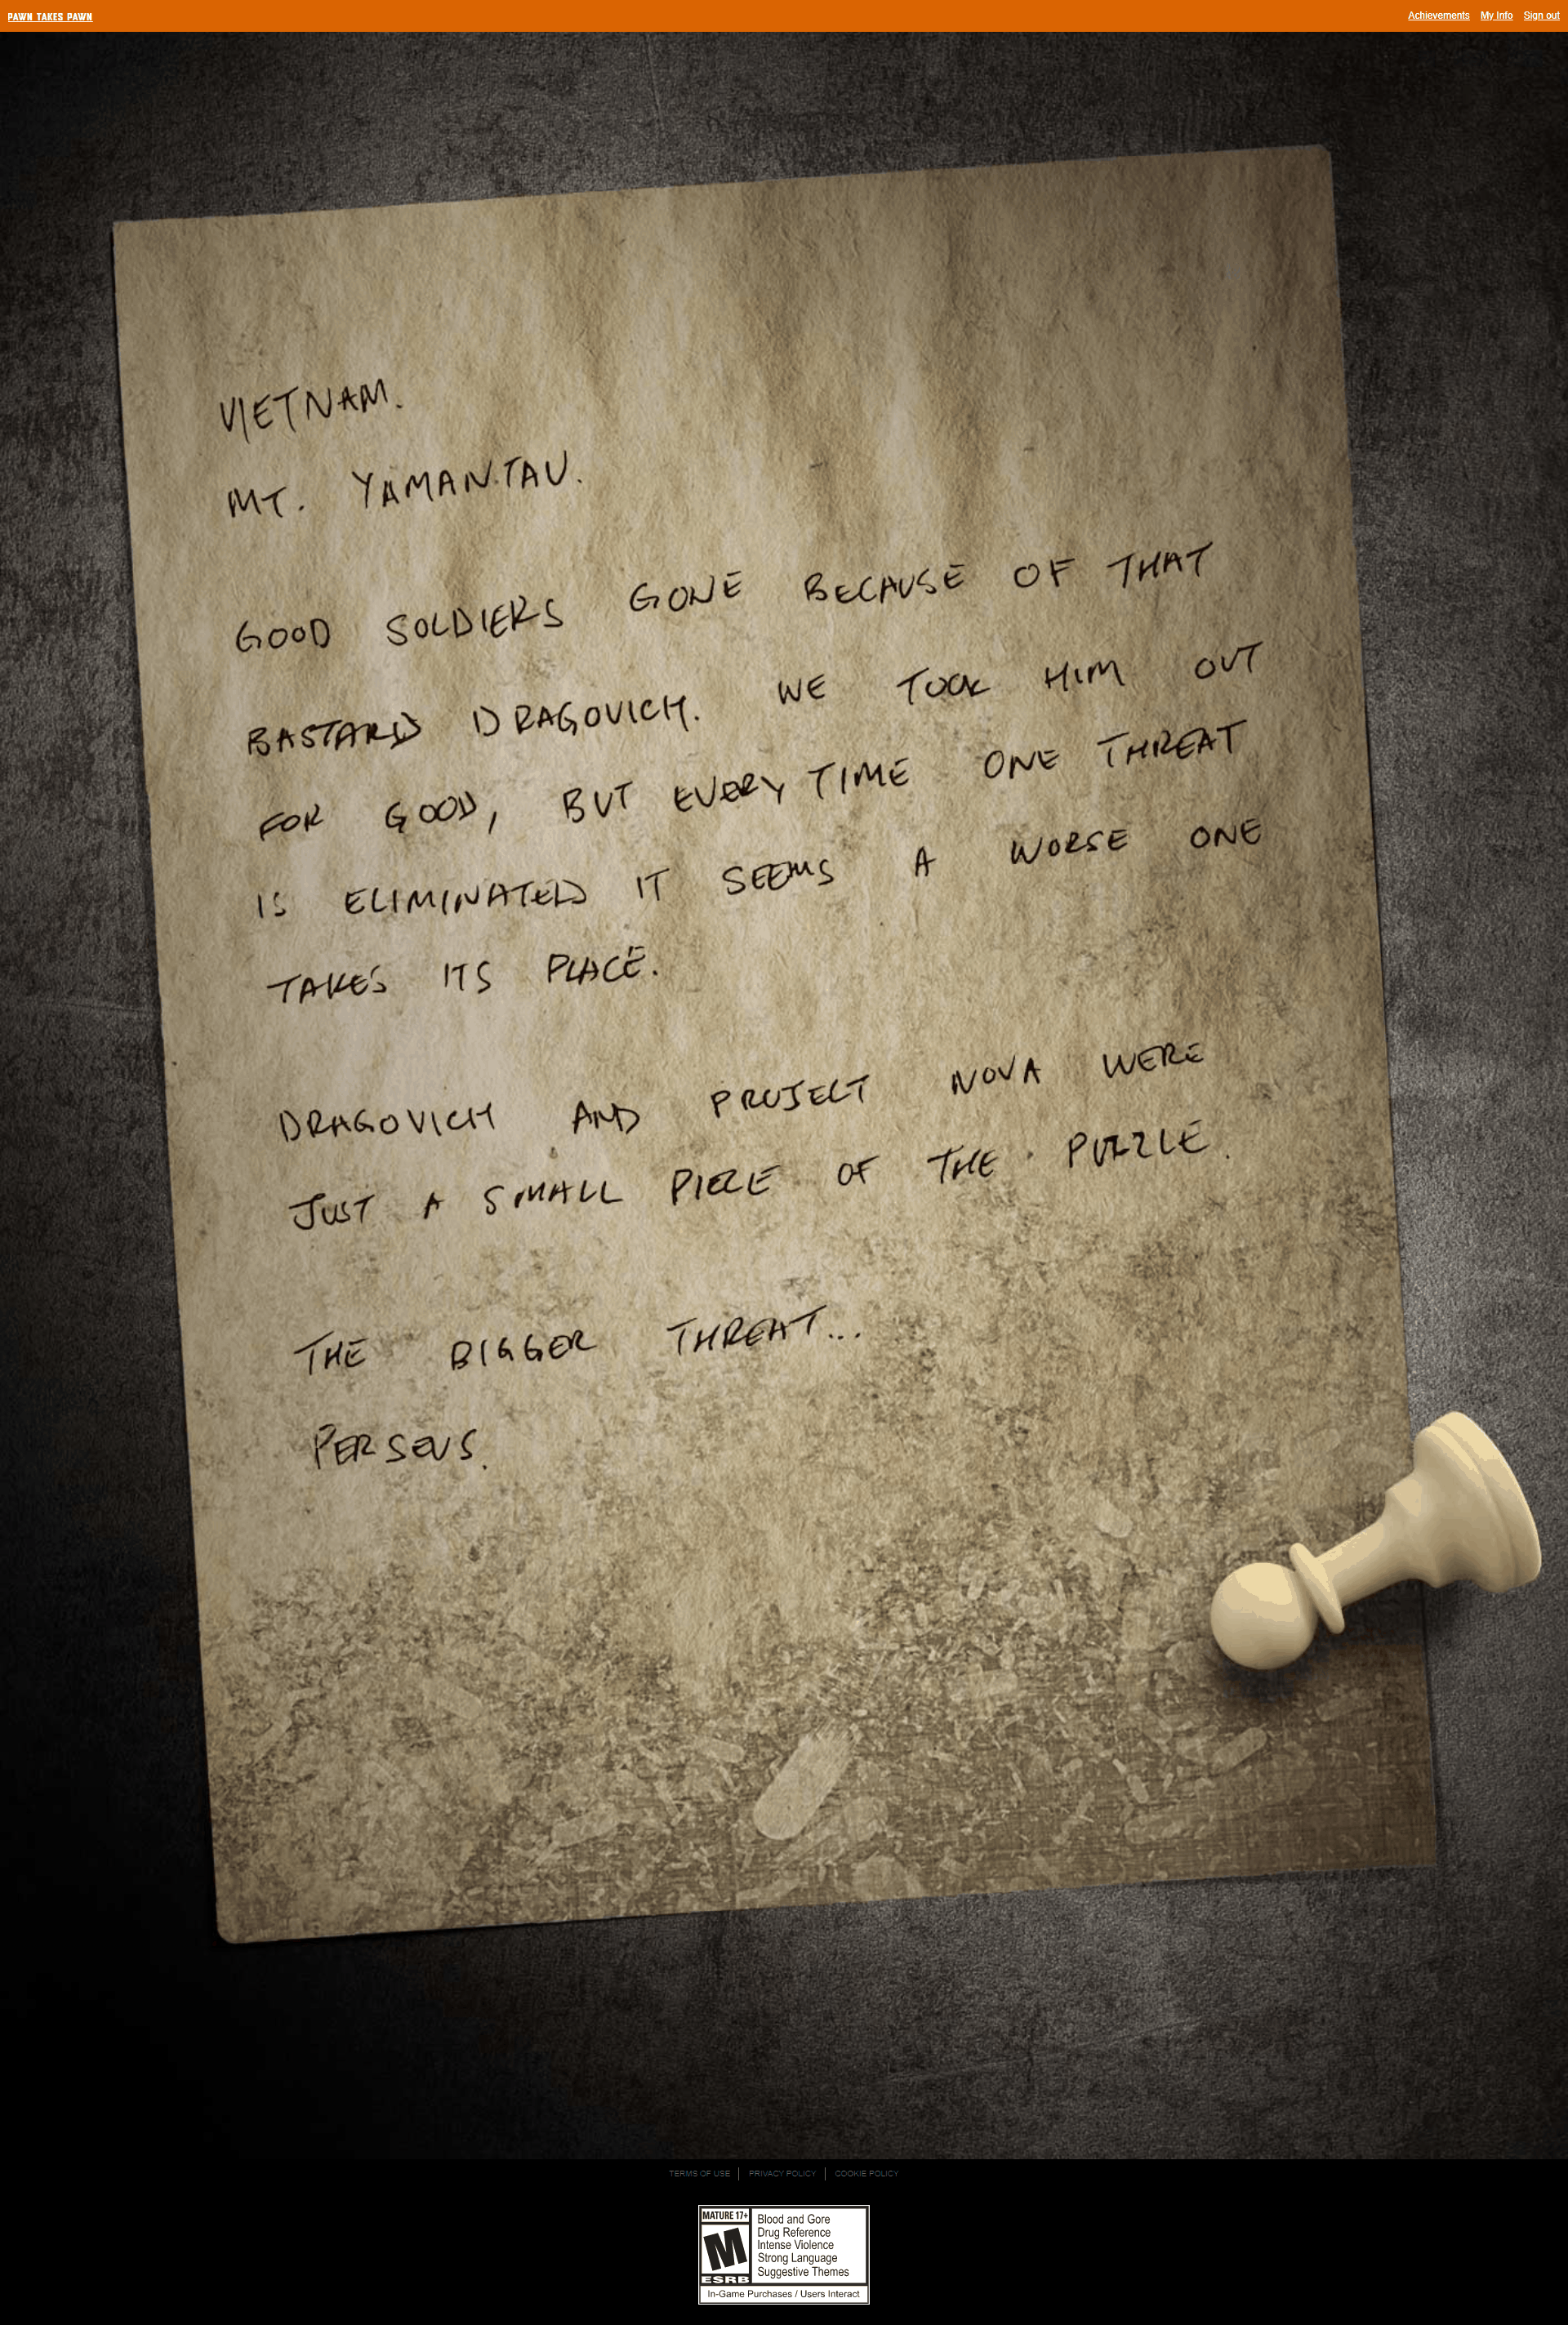 PAWN TAKES PAWN
Achievements My Info Sign out
VIETNAM.
MT. YAMANTAU.
GOOD SOLDIERS GONE BECAUSE OF THAT
BASTARD DRAGOVICH. WE TOOK HIM OUT
FOR GOOD, BUT EVERY TIME ONE THREAT
IS ELIMINATED IT SEEMS A WORSE ONE
TAKES ITS PLACE.
DRAGOVICH AND PROJECT NOVA WERE
JUST A SMALL PIECE OF THE PUZZLE.
THE BIGGER THREAT...
PERSEUS.
TERMS OF USE PRIVACY POLICY COOKIE POLICY
MATURE 17+
M
ESRB
Blood and Gore
Drug Reference
Intense Violence
Strong Language
Suggestive Themes
In-Game Purchases / Users Interact